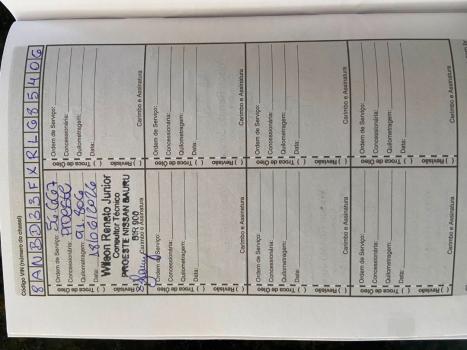 Código VIN (número do chassi)
8ANBD33FXRLG85406
Ordem de Serviço:
Concessionária: PROESTE
Quilometragem:
Data:
Wilson Renato Junior
Consultor Técnico
PROESTE NISSAN BAURU
BIR 900
Carimbo e Assinatura
Troca de Óleo ( ) Revisão ( )
Ordem de Serviço:
Concessionária:
Quilometragem:
Data:
Carimbo e Assinatura
Troca de Óleo ( ) Revisão ( )
Ordem de Serviço:
Concessionária:
Quilometragem:
Data:
Carimbo e Assinatura
Troca de Óleo ( ) Revisão ( )
Ordem de Serviço:
Concessionária:
Quilometragem:
Data:
Carimbo e Assinatura
Troca de Óleo ( ) Revisão ( )
Ordem de Serviço:
Concessionária:
Quilometragem:
Data:
Carimbo e Assinatura
Troca de Óleo ( ) Revisão ( )
Ordem de Serviço:
Concessionária:
Quilometragem:
Data:
Carimbo e Assinatura
Troca de Óleo ( ) Revisão ( )
Ordem de Serviço:
Concessionária:
Quilometragem:
Data:
Carimbo e Assinatura
Troca de Óleo ( ) Revisão ( )
Ordem de Serviço:
Concessionária:
Quilometragem:
Data:
Carimbo e Assinatura
Troca de Óleo ( ) Revisão ( )